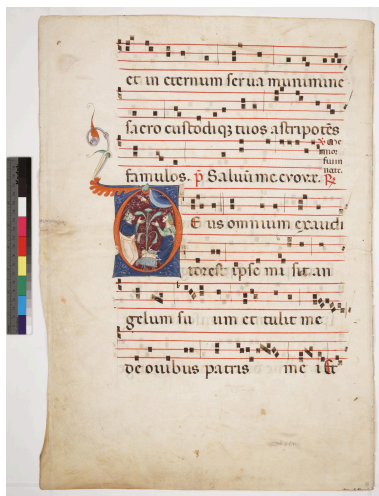 et in eternum serva munimine
sacro custodiq; tuos astripotēs
famulos. p̄ Salvū me
D Eus omnium exaudi
tor est ipse misit an
gelum su um et tulit me
de ovibus patris me i